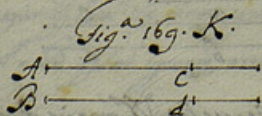 Fig.ª 169. K.
A C
B d